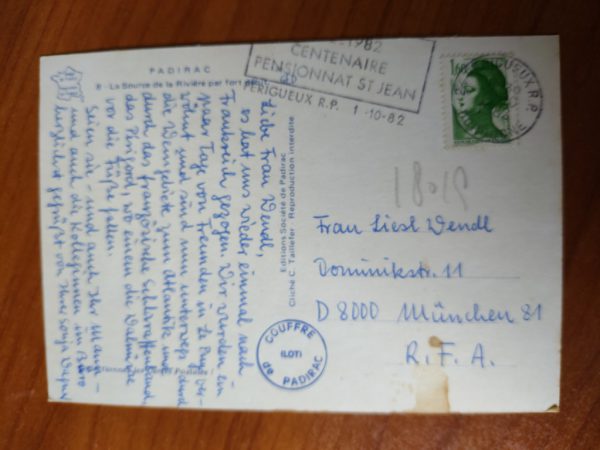 PADIRAC
8 - La Source de la Rivière par fort
Liebe Frau Wendl,
es hat uns wieder einmal nach
Frankreich gezogen. Wir wurden ein
paar Tage von Freunden in Le Puy ver-
wöhnt und sind nun unterwegs durch
die Weingebiete zum Atlantik und
durch das französische Schlaraffenland,
das Périgord, wo einem die Walnüsse
vor die Füße fallen.
Seien Sie - und auch Ihr Mann -
und auch die Kolleginnen im Büro
herzlichst gegrüßt von Ihrer
Editions Société de Padirac
Cliché C. Taillefer Reproduction interdite
1982
CENTENAIRE
PENSIONNAT ST JEAN
PERIGUEUX R.P. 1 -10-82
PERIGUEUX R.P.
1,60
18019
Frau Liesl Wendl
Dominikstr. 11
D 8000 München 81
R.F.A.
GOUFFRE
ILOTI
de PADIRAC